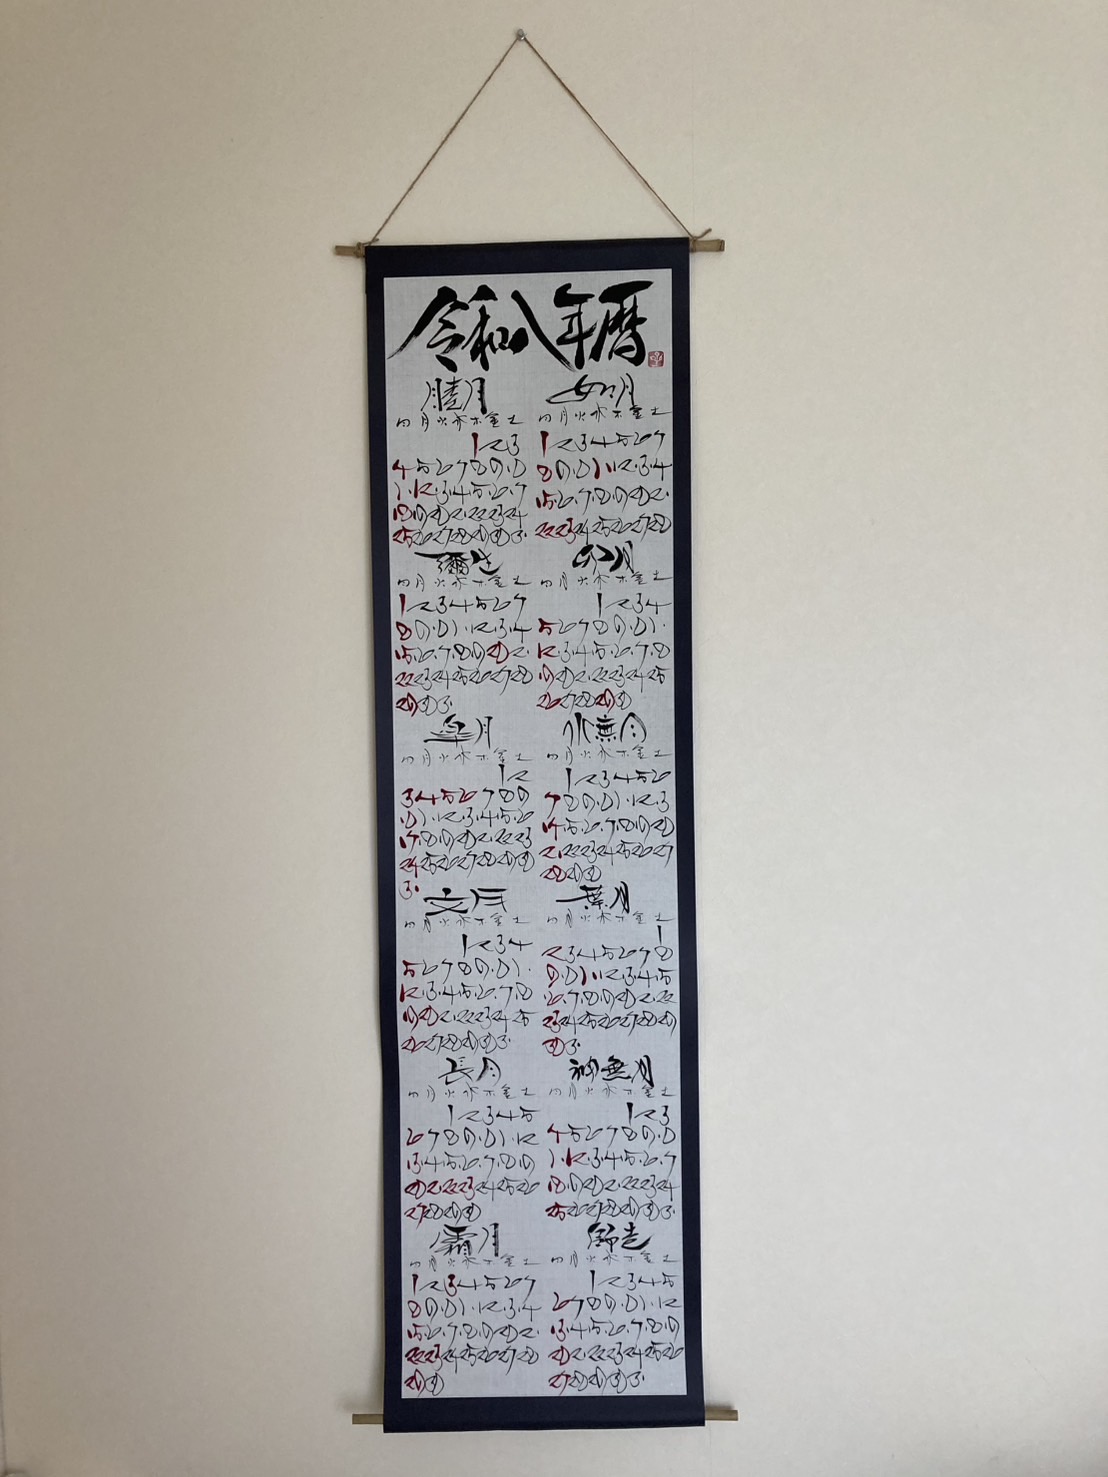 令和八年暦
睦月
日月火水木金土
1 2 3
4 5 6 7 8 9 10
11 12 13 14 15 16 17
18 19 20 21 22 23 24
25 26 27 28 29 30 31
如月
日月火水木金土
1 2 3 4 5 6 7
8 9 10 11 12 13 14
15 16 17 18 19 20 21
22 23 24 25 26 27 28
彌生
日月火水木金土
1 2 3 4 5 6 7
8 9 10 11 12 13 14
15 16 17 18 19 20 21
22 23 24 25 26 27 28
29 30 31
卯月
日月火水木金土
1 2 3 4
5 6 7 8 9 10 11
12 13 14 15 16 17 18
19 20 21 22 23 24 25
26 27 28 29 30
皐月
日月火水木金土
1 2
3 4 5 6 7 8 9
10 11 12 13 14 15 16
17 18 19 20 21 22 23
24 25 26 27 28 29 30
31
水無月
日月火水木金土
1 2 3 4 5 6
7 8 9 10 11 12 13
14 15 16 17 18 19 20
21 22 23 24 25 26 27
28 29 30
文月
日月火水木金土
1 2 3 4
5 6 7 8 9 10 11
12 13 14 15 16 17 18
19 20 21 22 23 24 25
26 27 28 29 30 31
葉月
日月火水木金土
1
2 3 4 5 6 7 8
9 10 11 12 13 14 15
16 17 18 19 20 21 22
23 24 25 26 27 28 29
30 31
長月
日月火水木金土
1 2 3 4 5
6 7 8 9 10 11 12
13 14 15 16 17 18 19
20 21 22 23 24 25 26
27 28 29 30
神無月
日月火水木金土
1 2 3
4 5 6 7 8 9 10
11 12 13 14 15 16 17
18 19 20 21 22 23 24
25 26 27 28 29 30 31
霜月
日月火水木金土
1 2 3 4 5 6 7
8 9 10 11 12 13 14
15 16 17 18 19 20 21
22 23 24 25 26 27 28
29 30
師走
日月火水木金土
1 2 3 4 5
6 7 8 9 10 11 12
13 14 15 16 17 18 19
20 21 22 23 24 25 26
27 28 29 30 31